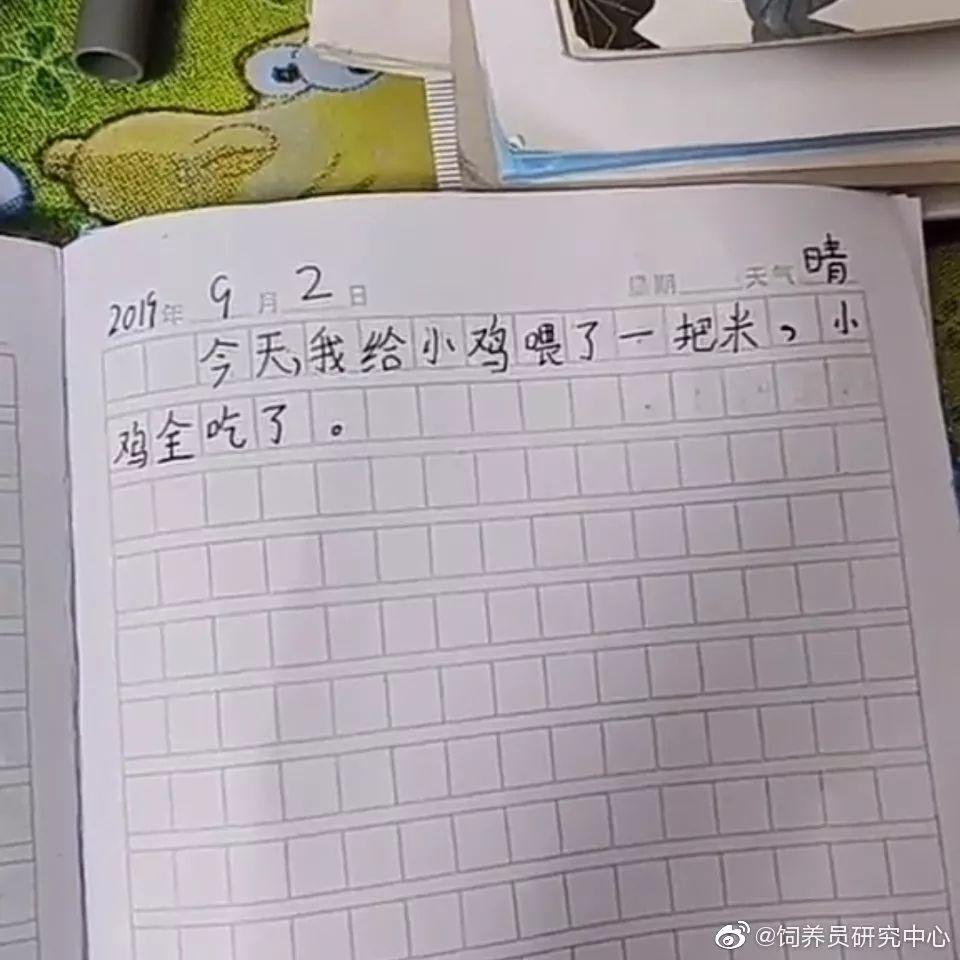 2019年 9 月 2 日 星期 天气 晴
今天,我给小鸡喂了一把米,小
鸡全吃了。
@饲养员研究中心